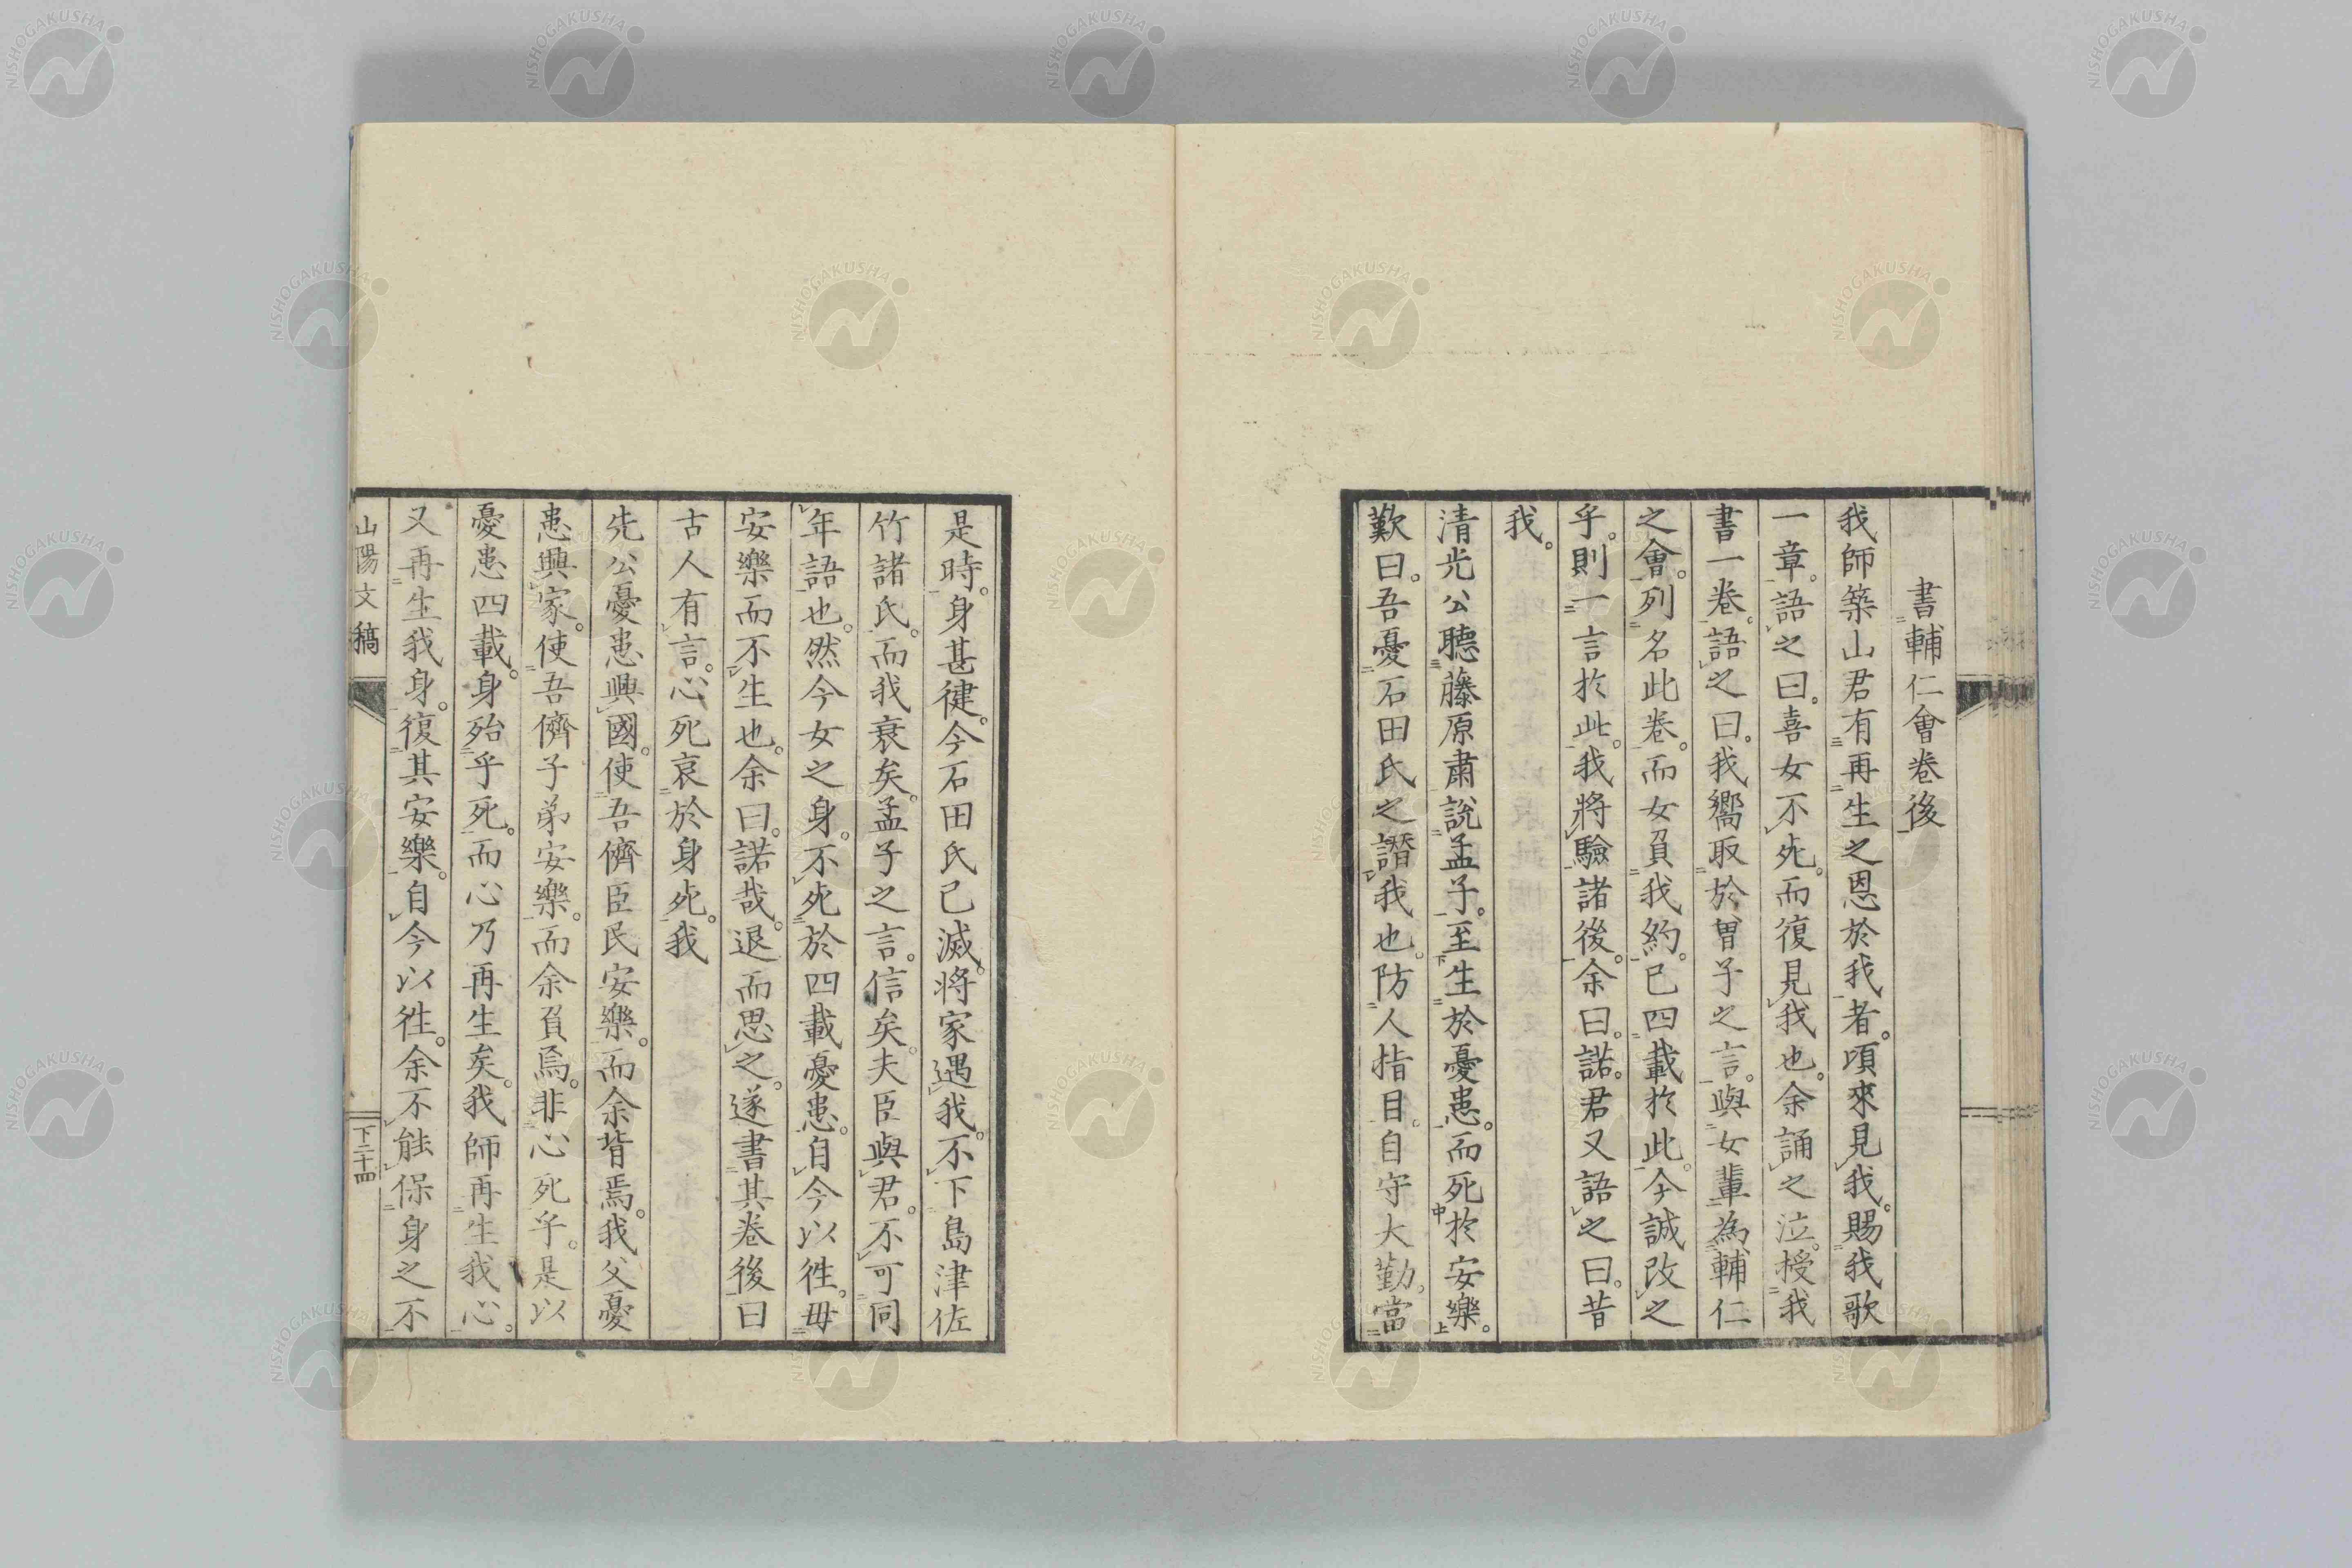 書輔仁會卷後
我師築山君有再生之恩於我者。頃來見我。賜我歌
一章。語之曰。喜女不死。而復見我也。余誦之泣。授我
書一卷。語之曰。我嚮取於曽子之言。與女輩為輔仁
之會。列名此卷。而女負我約。已四載於此。今誠改之
乎。則一言於此。我將驗諸後。余曰。諾。君又語之曰。昔
我。
清光公聽藤原肅說孟子。至生於憂患。而死於安樂。
歎曰。吾憂石田氏之譖我也。防人指目。自守大勤。當
是時。身甚健。今石田氏已滅。將家遇我。不下島津佐
竹諸氏。而我衰矣。孟子之言。信矣。夫臣與君。不可同
年語也。然今女之身。不死於四載憂患。自今以徃。毋
安樂而不生也。余曰。諾哉。退而思之。遂書其卷後曰
古人有言。心死哀於身死。我
先公憂患興國。使吾儕臣民安樂。而余背焉。我父憂
患興家。使吾儕子弟安樂。而余負焉。非心死乎。是以
憂患四載。身殆乎死。而心乃再生矣。我師再生我心。
又再生我身。復其安樂。自今以徃。余不能保身之不
山陽文稿
下三十四
NISHOGAKUSHA